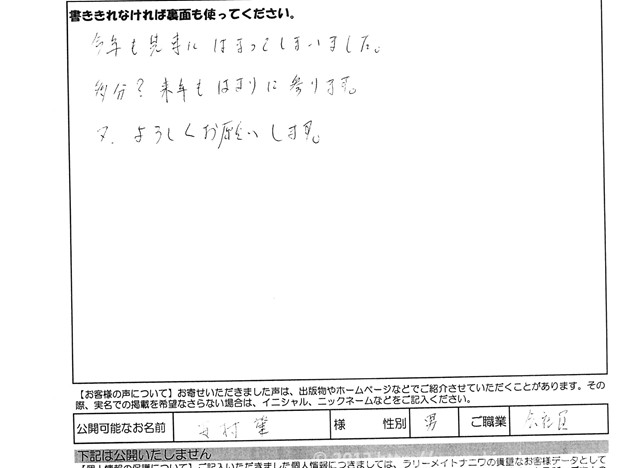 書ききれなければ裏面も使ってください。
今年も見事にはまってしまいました。
多分?来年もはまりに参ります。
又、よろしくお願いします。
【お客様の声について】お寄せいただきました声は、出版物やホームページなどでご紹介させていただくことがあります。その
際、実名での掲載を希望なさらない場合は、イニシャル、ニックネームなどをご記入ください。
公開可能なお名前 村 様 性別 男 ご職業 会社員
下記は公開いたしません
【個人情報の保護について】ご記入いただきました個人情報につきましては、ラリーメイトナニワの貴重なお客様データとして